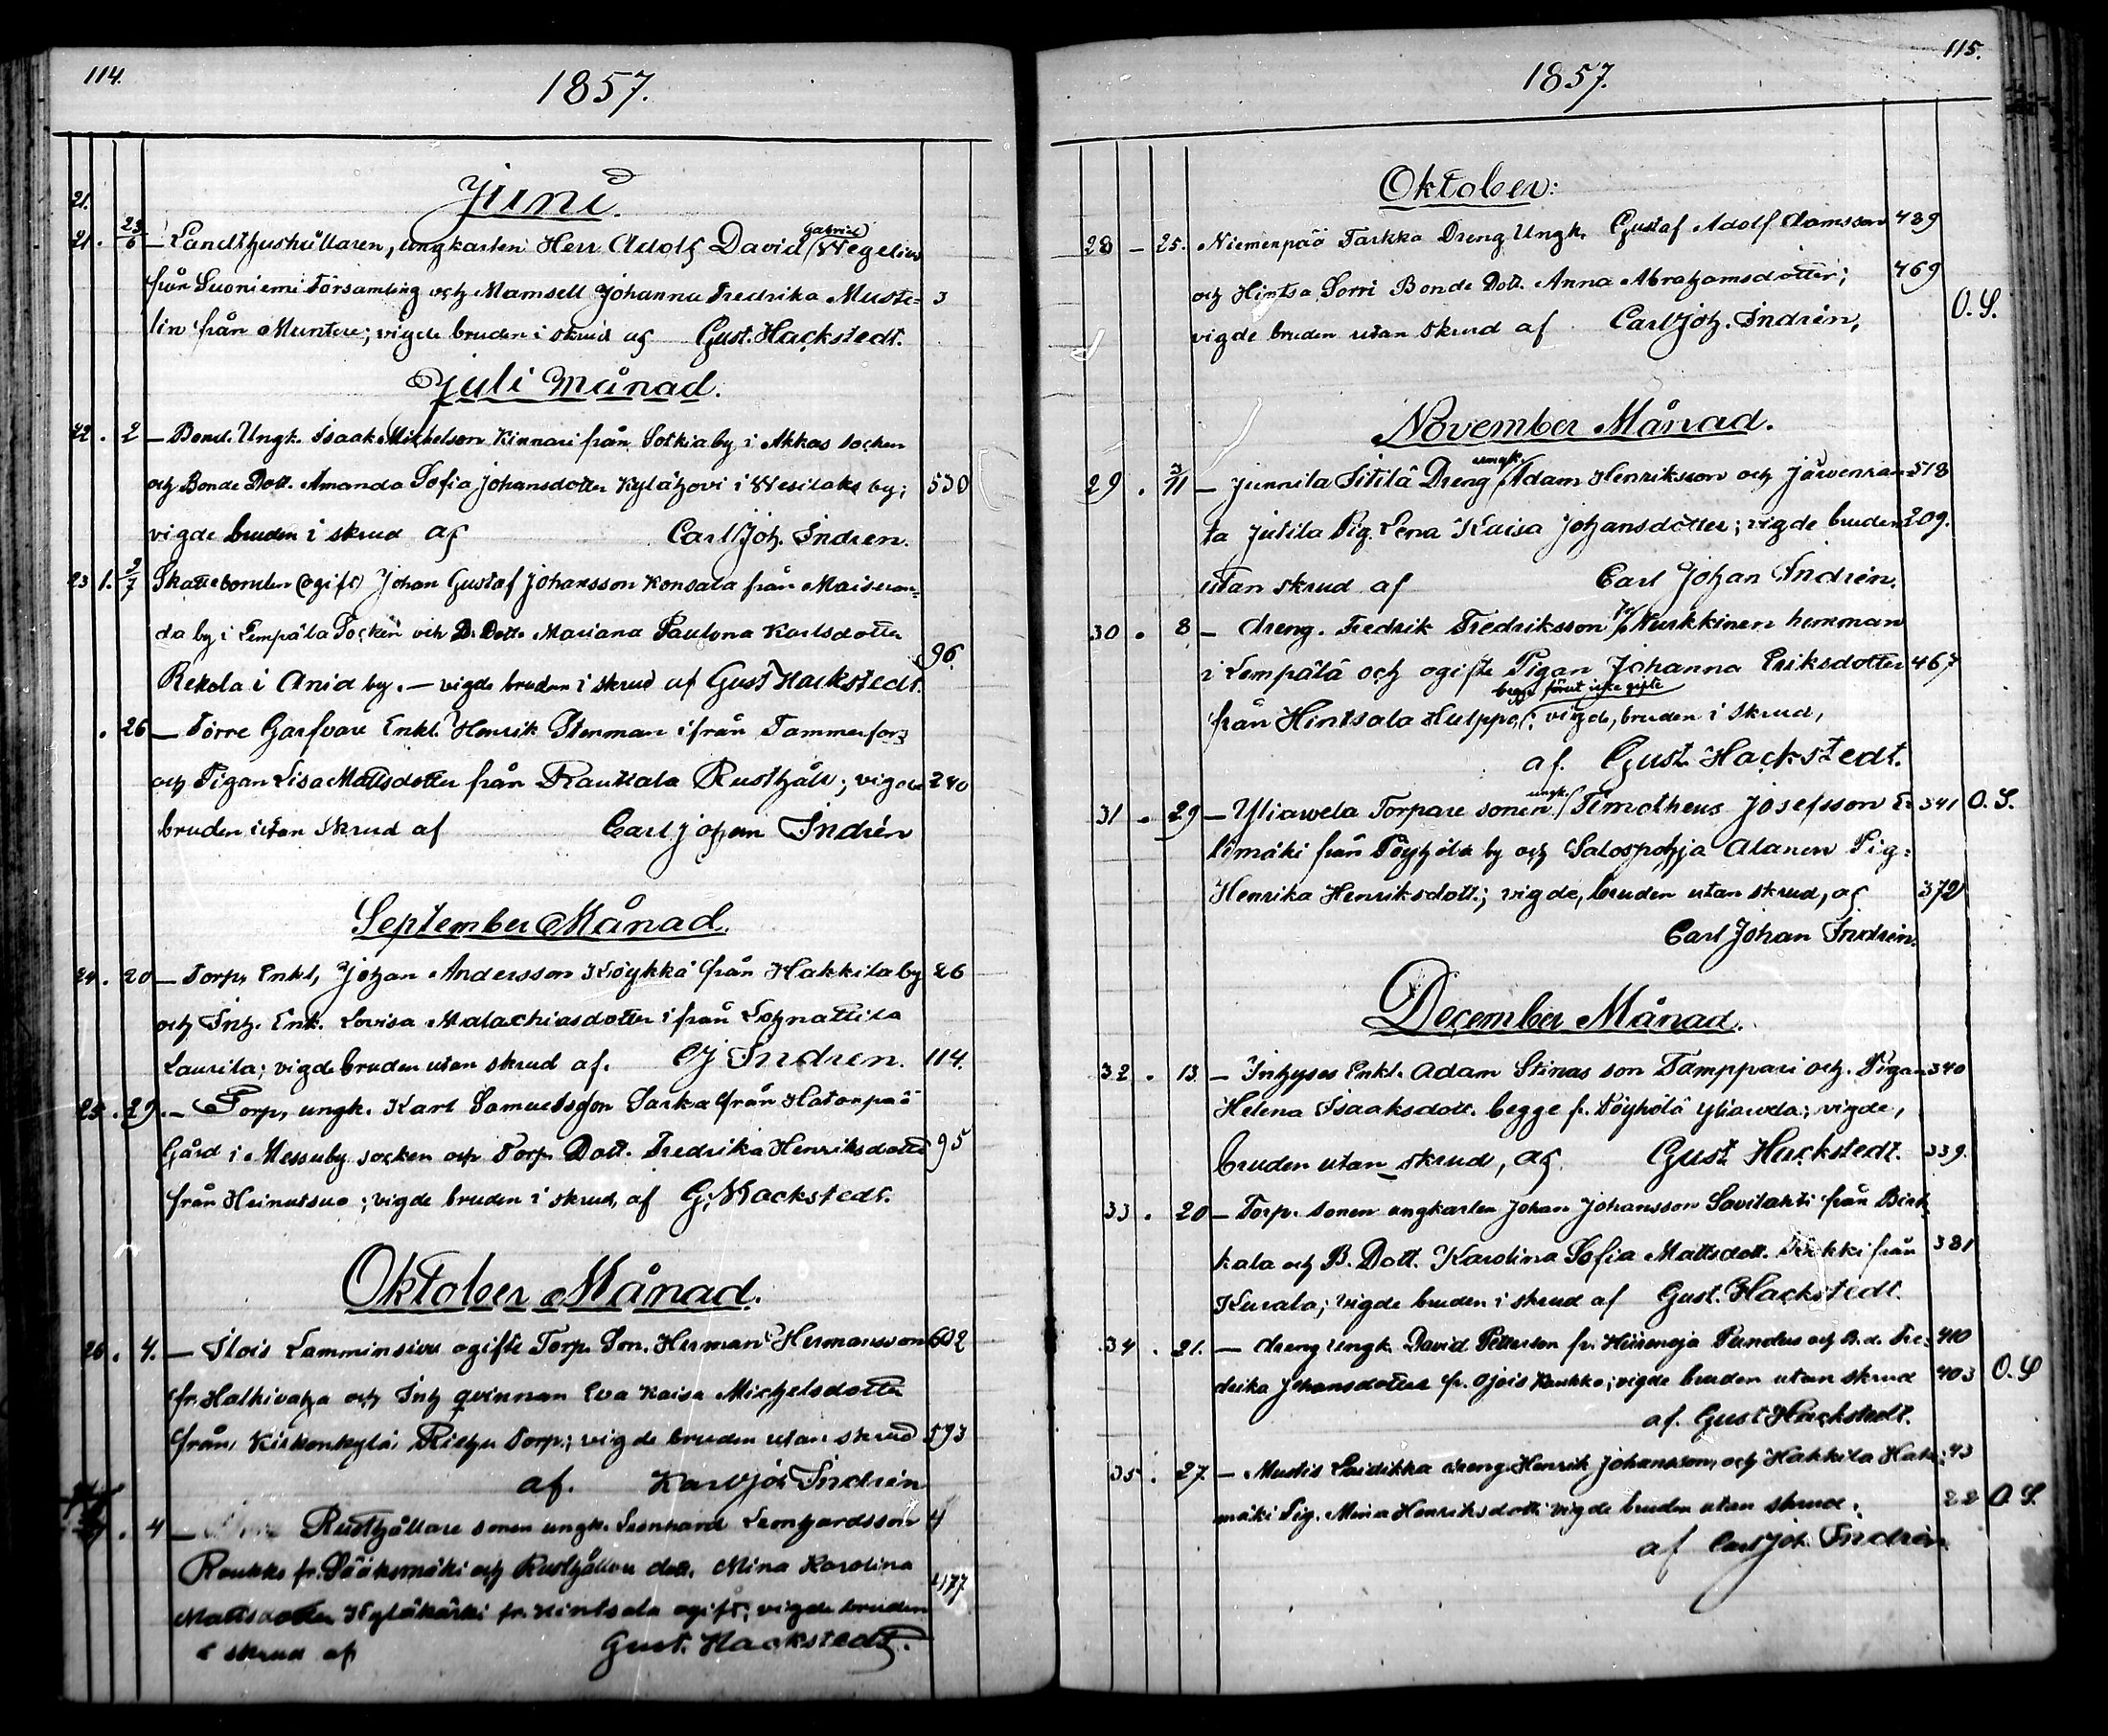 114.
1857.
Juni.
21.
21. 23/6 — Landthushållaren, ungkarlen Herr Adolf David Gabriel Wegelius
från Suoniemi Församling och Mamsell Johanna Fredrika Muste= 3
lin från Muntere; vigde bruden i skrud af Gust. Hackstedt.
Juli Månad.
22. 2 — Bond. Ungk. Isaak Michelson Kinnari från Sotkia by i Akkas socken
och Bonde Dott. Amanda Sofia Johansdotter Kylähovi i Wesilaks by; 530
vigde bruden i skrud af Carl Joh. Indren.
23 1. 2/7 Skattebonden (ogift) Johan Gustaf Johansson Konsala från Maisean=
da by i Lempäla Socken och B. Dott. Mariana Paulina Karlsdotter
Rekola i Anid by. — vigde bruden i skrud af Gust Hackstedt. 96.
. 26 — Förre Garfvare Enkl. Henrik Stenman ifrån Tammerfors
och Pigan Lisa Mattsdotter från Rautiala Rusthåll; vigde 240
bruden utan skrud af Carl Johan Indrén
September Månad.
24. 20 — Torp. Enkl, Johan Andersson Köykkä från Hakkila by 26
och Inh. Enk. Lovisa Malachiasdotter ifrån Lohnattila
Laurila; vigde bruden utan skrud af. CJ Indren. 114.
25. 29. — Torp, ungk. Karl Samuelsson Sarka från Hatanpää
Gård i Messuby socken och Torp Dott. Fredrika Henriksdotter 95
från Heinutsuo; vigde bruden i skrud, af G. Hackstedt.
Oktober Månad.
26. 4. — Ilois Lamminsivu ogifte Torp. Son. Herman Hermansson 602
fr. Halkivaha och Inh qvinnan Eva Kaisa Michelsdotter
från, Kirkonkylä, Riehu Torp.; vigde bruden utan skrud 593
af. Karl Joh Indrén
27. 4 — Rusthållare sonen ungk. Leonhard Leonhardsson 4
Roukko fr. Sääksmäki och Rusthållare dott. Mina Karolina
Mattsdotter Kyläkärki fr. Hintsala ogift; vigde bruden 477
i skrud af Gust. Hackstedt.
115.
1857.
Oktober:
28 — 25. Niemenpää Tarkka Dreng Ungk. Gustaf Adolf Adamsson 489
och Hintsa Sorri Bonde Dott. Anna Abrahamsdotter; 469
vigde bruden utan skrud af Carl Joh. Indrén, O. S.
November Månad.
29. 3/11 — Junnila Sitilä Dreng ungk. Adam Henriksson och Järvenran 518
ta Jutila Pig. Lena Kaisa Johansdotter; vigde bruden 209.
utan skrud af Carl Johan Indrén.
30. 8 — dreng. Fredrik Fredriksson fr Nurkkinen hemman
i Lempälä och ogifte Pigan Johanna Eriksdotter 467
från Hintsala Hulppo, begge förut icke gifte; vigde, bruden i skrud,
af. Gust. Hackstedt.
31. 29 — Yliawela Torpare sonen ungk. Timotheus Josefsson Er 341 O. S.
limäki från Pöyhölä by och Salospohja Alanen Pig:
Henrika Henriksdott.; vigde, bruden utan skrud, af 372
Carl Johan Indrén.
December Månad.
32. 13. — Inhyses Enkl. Adam Stinas son Tamppari och Pigan 340
Helena Isaaksdott. begge fr. Pöyhölä Yliawela; vigde,
bruden utan skrud, af Gust. Hackstedt. 339.
33. 20 — Torp. sonen ungkarlen Johan Johansson Savilahti från Birk
kala och B. Dott. Karolina Sofia Mattsdott. från 381
Kurala; vigde bruden i skrud af Gust. Hackstedt.
34. 21. — dreng Ungk. David Petterson fr. Hiirenoja Pundus och B. d. Fre= 410
drika Johansdotter fr. Ojois Kaukko; vigde bruden utan skrud 403 O. S
af. Gust Hackstedt.
35. 27. — Mustis Laidikka dreng Henrik Johansson, och Hakkila Hake= 43
mäki Pig. Mina Henriksdott. vigde bruden utan skrud. 22 O. S.
af Carl Joh. Indrén